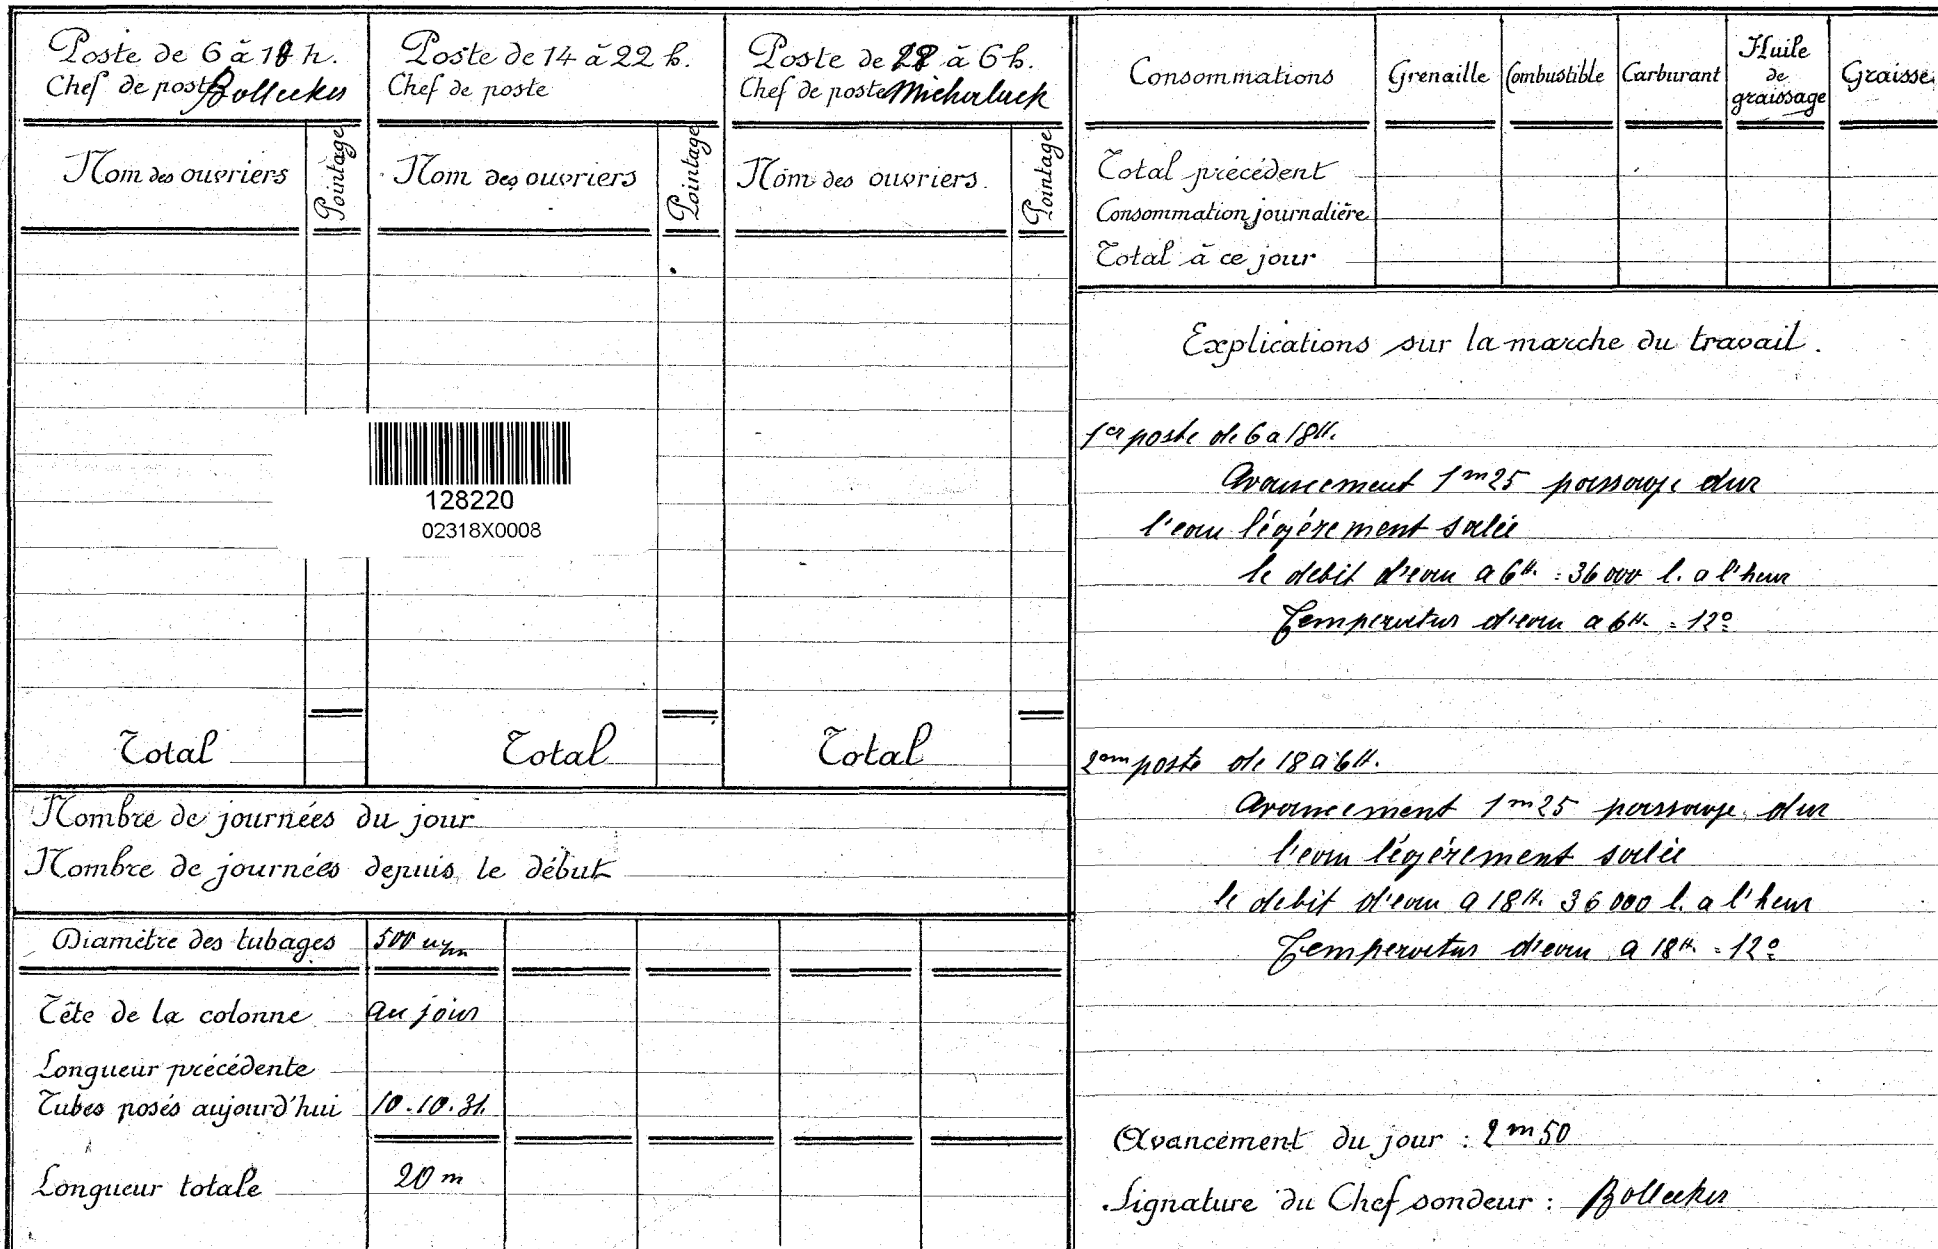 Poste de 6 à 18 h.
Chef de poste Bollecker
Nom des ouvriers
Pointage
Total
Poste de 14 à 22 h.
Chef de poste
Nom des ouvriers
Pointage
Total
Poste de 18 à 6 h.
Chef de poste
Nom des ouvriers.
Pointage
Total
128220
02318X0008
Nombre de journées du jour
Nombre de journées depuis le début
Diamètre des tubages 500 m/m
Tête de la colonne au jour
Longueur précédente
Tubes posés aujourd'hui 10.10.31.
Longueur totale 20 m
Consommations Grenaille Combustible Carburant Huile de graissage Graisse
Total précédent
Consommation journalière
Total à ce jour
Explications sur la marche du travail.
1er poste de 6 a 18 H.
Avancement 1m25 passage dur
l'eau légérement salée
le debit d'eau a 6H. = 36 000 l. a l'heur
Temperatur d'eau a 6H. = 12°
2em poste de 18 a 6 H.
Avancement 1m25 passage dur
l'eau légérement salée
le debit d'eau a 18H. 36 000 l. a l'heur
Temperatur d'eau a 18H = 12°
Avancement du jour : 2m50
Signature du Chef sondeur : Bollecker